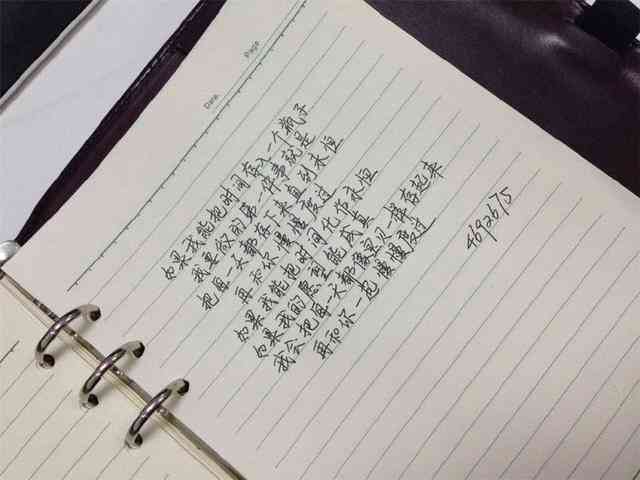 Date
Page
如果我能把时间存入一个瓶子
我要做的第一件事就是
把每一天都存下来直到永恒
再和你慢慢度过
如果我能把时间化作永恒
如果我的愿望能成真
我会把每一天都像宝贝一样存起来
再和你一起慢慢度过
4692675